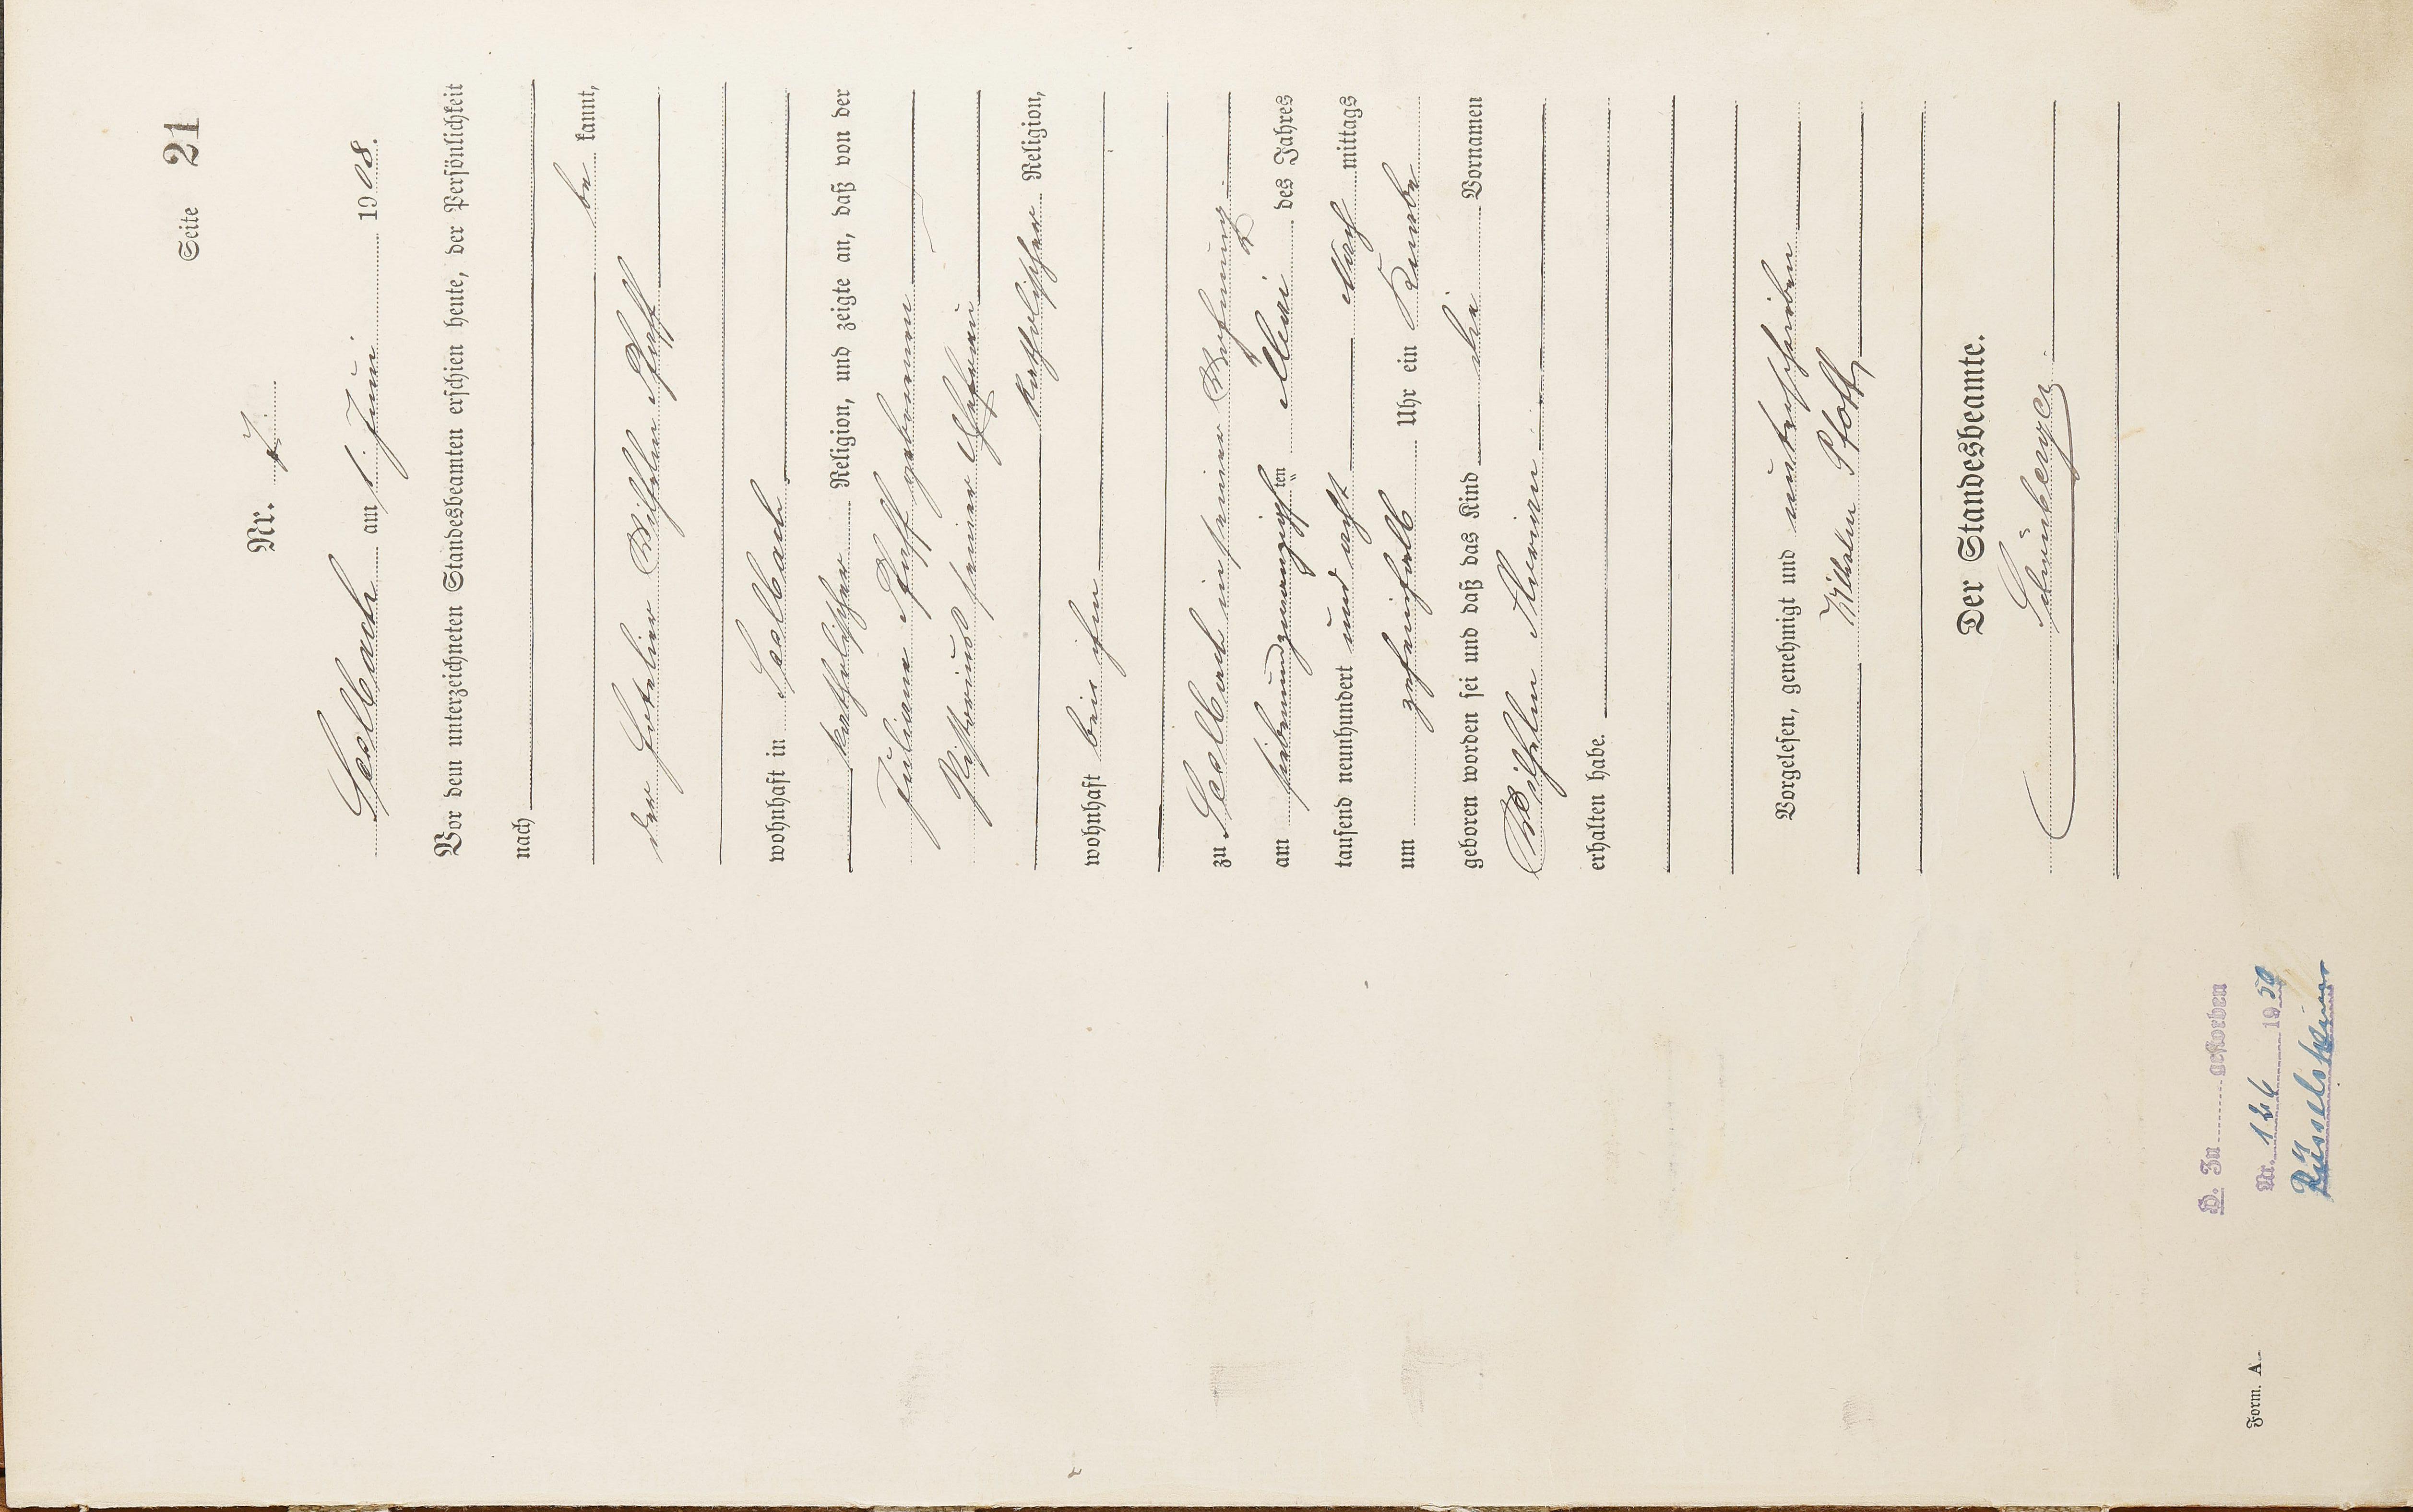 Seite 21
Nr. 7.
Seelbach am 1. Juni 1908.
Vor dem unterzeichneten Standesbeamten erschien heute, der Persönlichkeit
nach
be kannt,
der Wilhelm
wohnhaft in Seelbach
katholischer Religion, und zeigte an, daß von der
Juliane geborenen
seiner Ehefrau
katholischer Religion,
wohnhaft bei ihm
zu Seelbach in seiner Wohnung
am siebenundzwanzigsten Mai des Jahres
tausend neunhundert und acht Nach mittags
um zehneinhalb Uhr ein Knabe
geboren worden sei und daß das Kind die Vornamen
Wilhelm
erhalten habe.
Vorgelesen, genehmigt und unterschrieben
Wilhelm
Der Standesbeamte.
D. Zu gestorben
Nr. 126 1950
Rüsselsheim
Form. A.